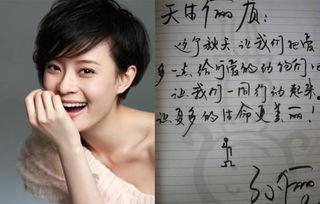 天生俪质:
这个秋天,让我们把爱
多一点,给可爱的动物们吧
让我们一同行动起来.
让更多的生命更美丽!
孙俪